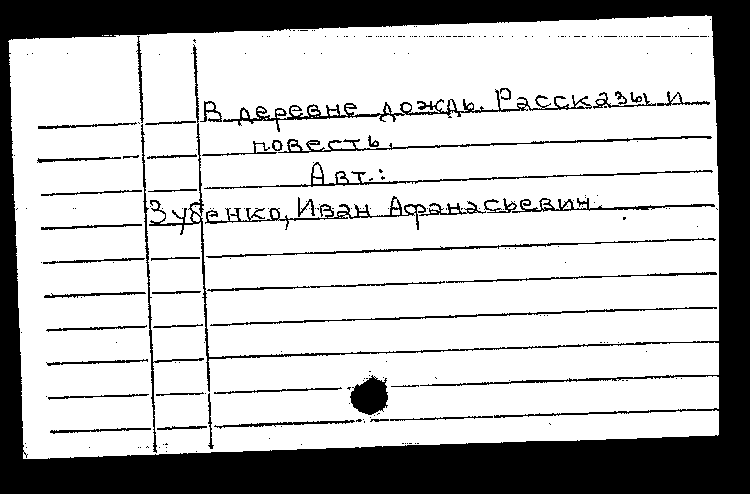 В деревне дождь. Рассказы и
повесть.
Авт.:
Зубенко, Иван Афанасьевич.